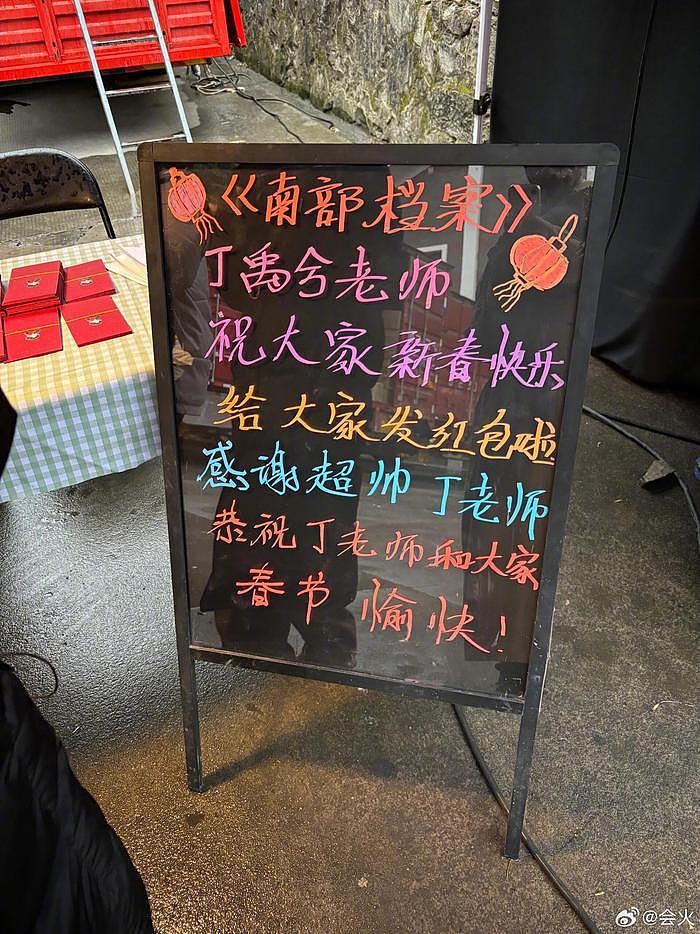 《南部档案》
丁禹兮老师
祝大家新春快乐
给大家发红包啦
感谢超帅丁老师
恭祝丁老师和大家
春节愉快！
@会火